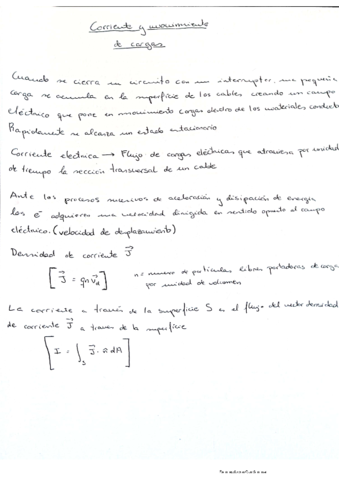 Corriente y movimiento
de cargas
Cuando se cierra un circuito con un interruptor, una pequeña
carga se acumula en la superficie de los cables creando un campo
eléctrico que pone en movimiento cargas dentro de los materiales conduct
Rapidamente se alcanza un estado estacionario
Corriente electrica → Flujo de cargas eléctricas que atraviesa por unidad
de tiempo la sección transversal de un cable
Ante los procesos sucesivos de aceleración y disipación de energía
los e⁻ adquieren una velocidad dirigida en sentido opuesto al campo
eléctrico. (velocidad de desplazamiento)
Densidad de corriente J⃗
[J⃗ = qn v⃗d] n = numero de particulas libres portadoras de carga
por unidad de volumen
La corriente a través de la superficie S es el flujo del vector densidad
de corriente J⃗ a traves de la superficie
[I = ∫S J⃗ · n̂ dA]